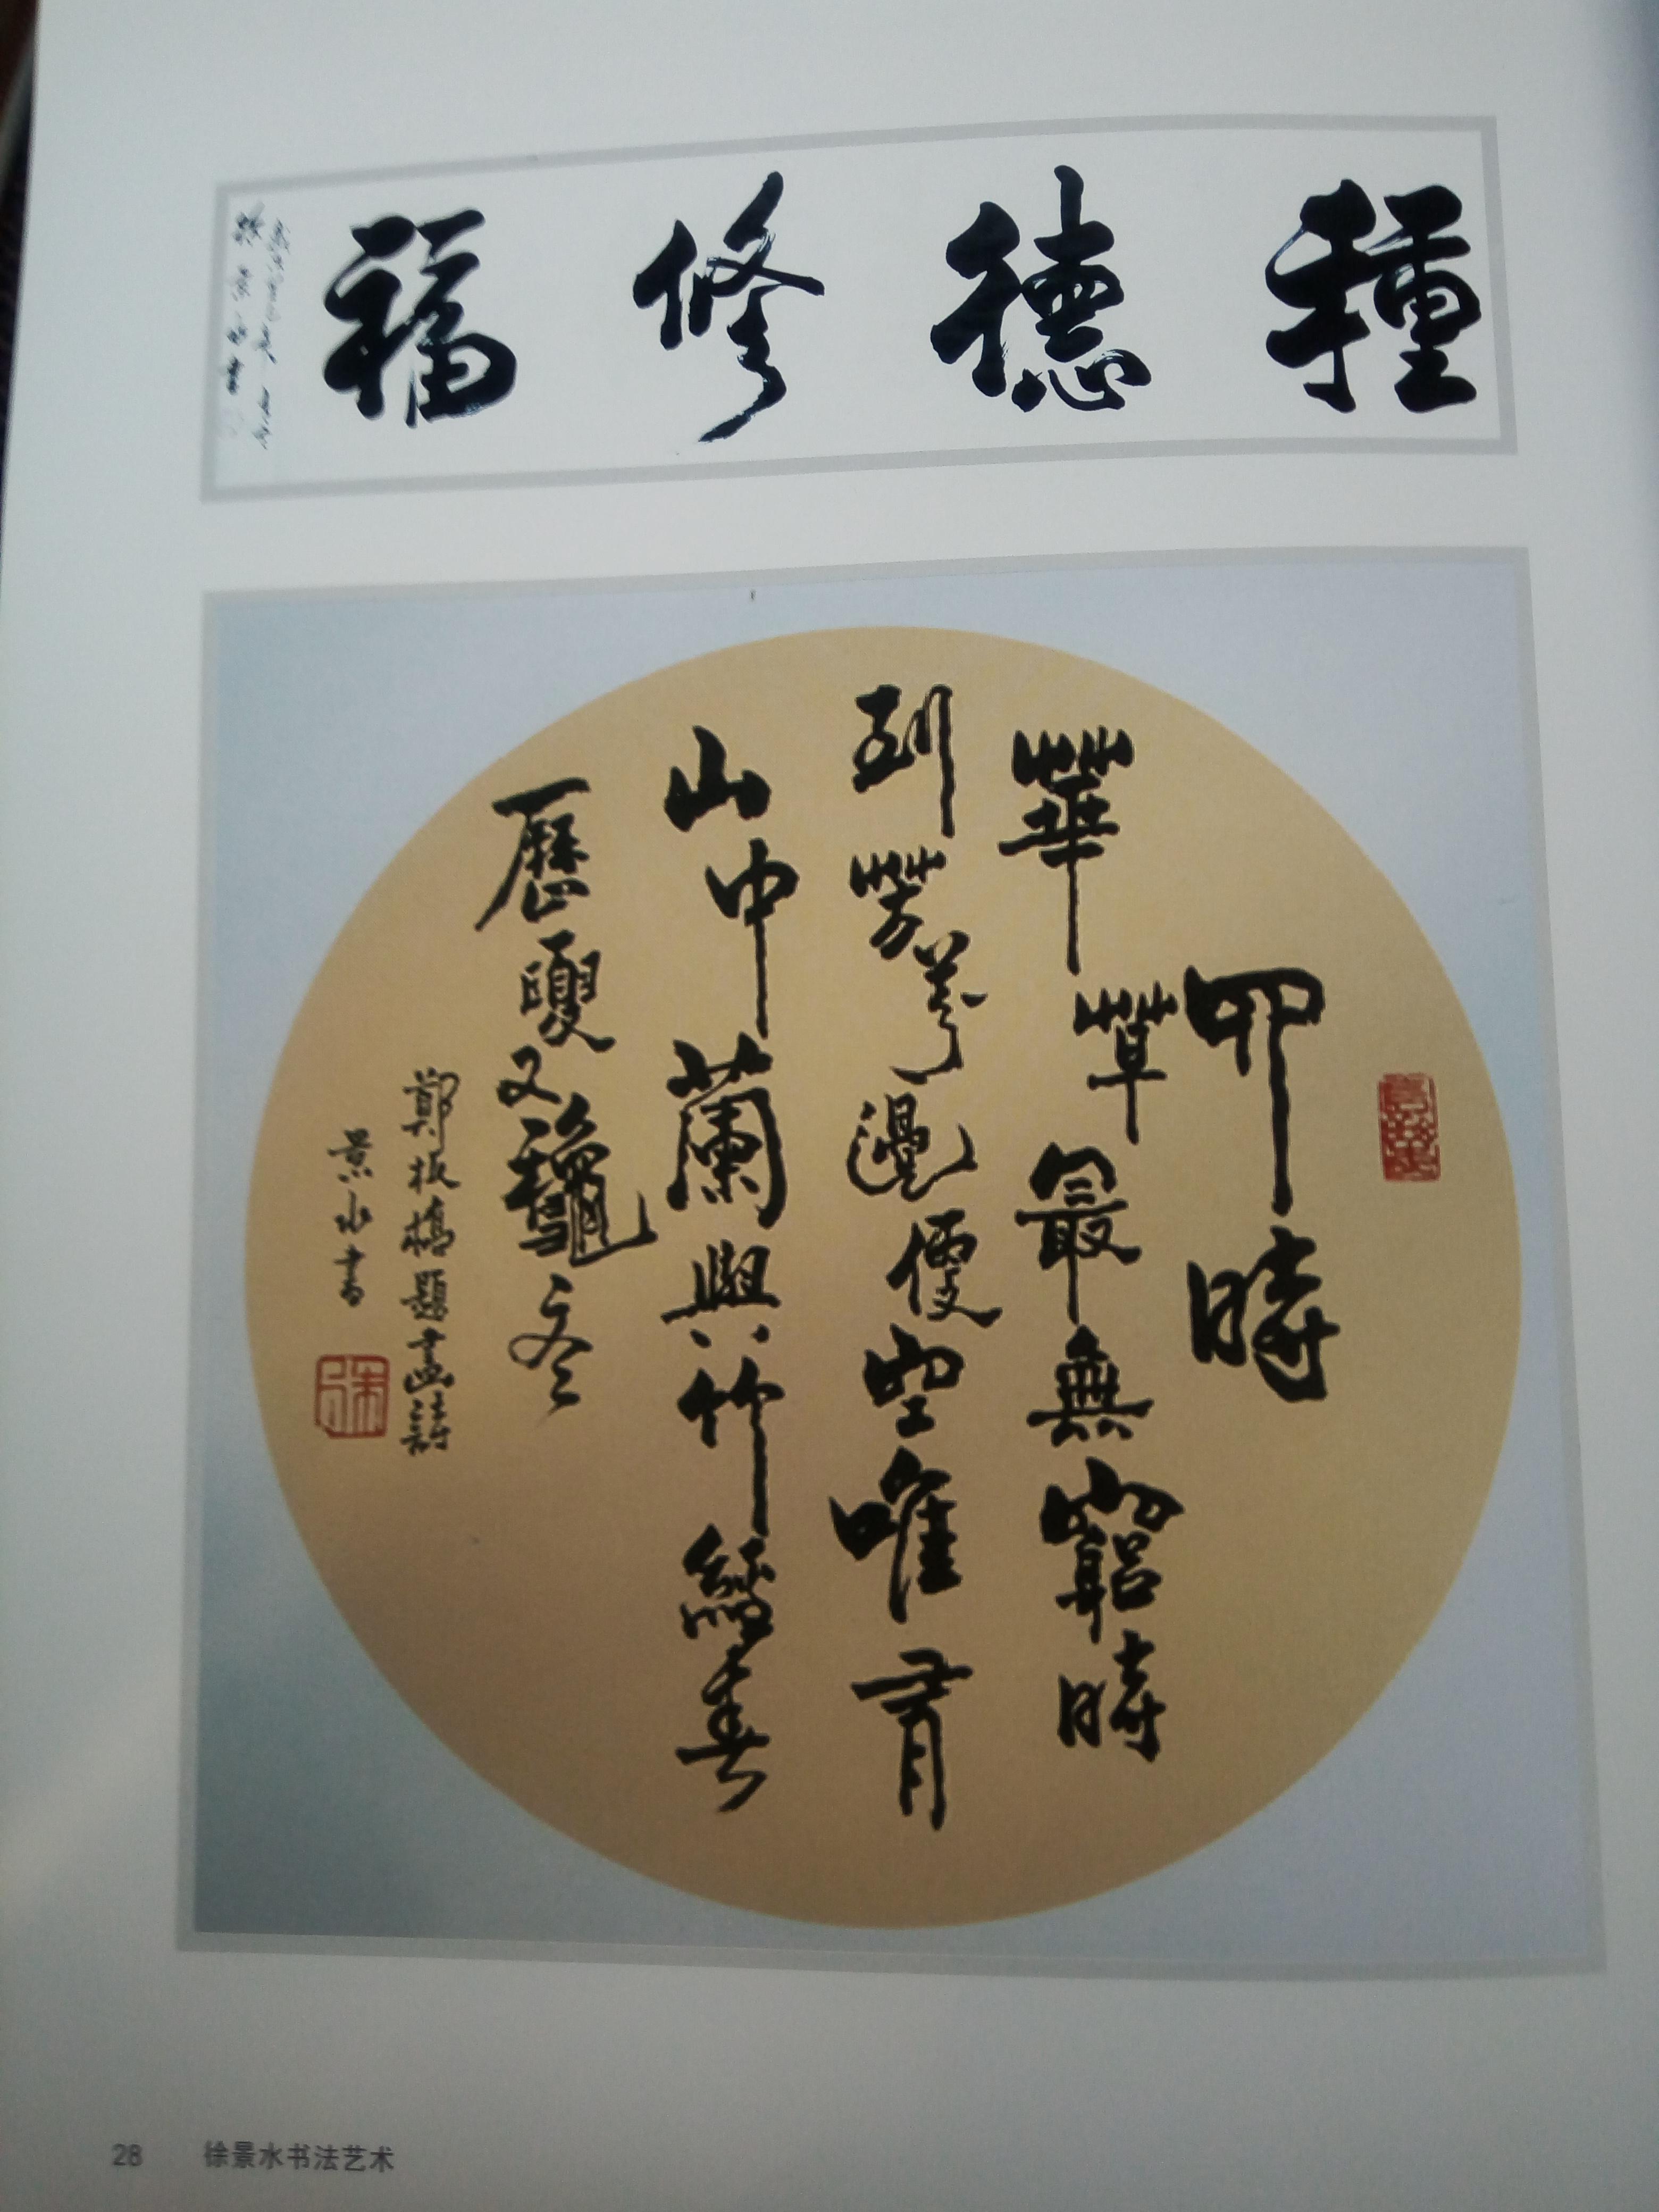 種德修福
徐景水書
四時
華草最無窮時
到芳芬過便空唯有
山中蘭與竹經春
歷夏又龝冬
鄭板橋題畫詩
景水書
28 徐景水书法艺术